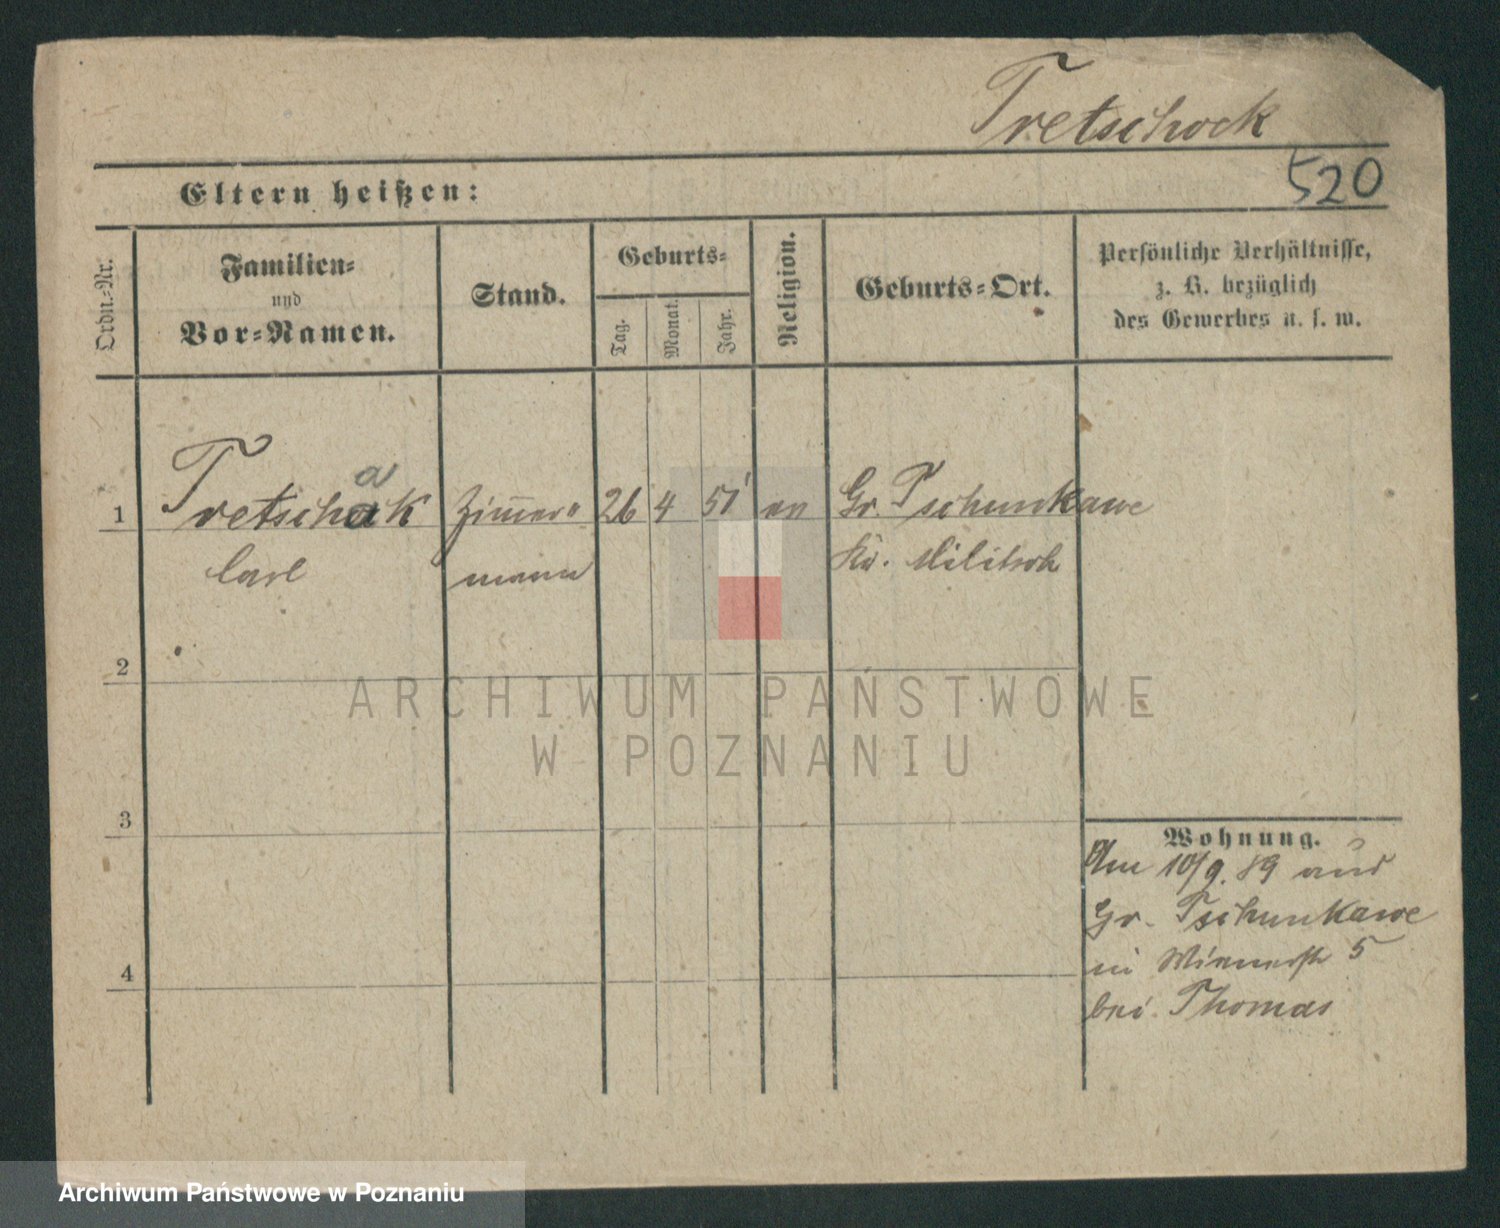 Tretschock
520
Eltern heißen:
Ordn.-Nr.
Familien-
und
Vor-Namen.
Stand.
Geburts-
Tag.
Monat.
Jahr.
Religion.
Geburts-Ort.
Persönliche Verhältnisse,
z. B. bezüglich
des Gewerbes u. s. w.
a
1 Tretschak Zimmer= 26 4 51 ev Gr. Tschunkawe
Carl mann Kr. Militsch
2
3
4
Wohnung.
Am 10/9. 89 aus
Gr. Tschunkawe
in Wienerstr 5
bei Thomas
ARCHIWUM PAŃSTWOWE
W POZNANIU
Archiwum Państwowe w Poznaniu